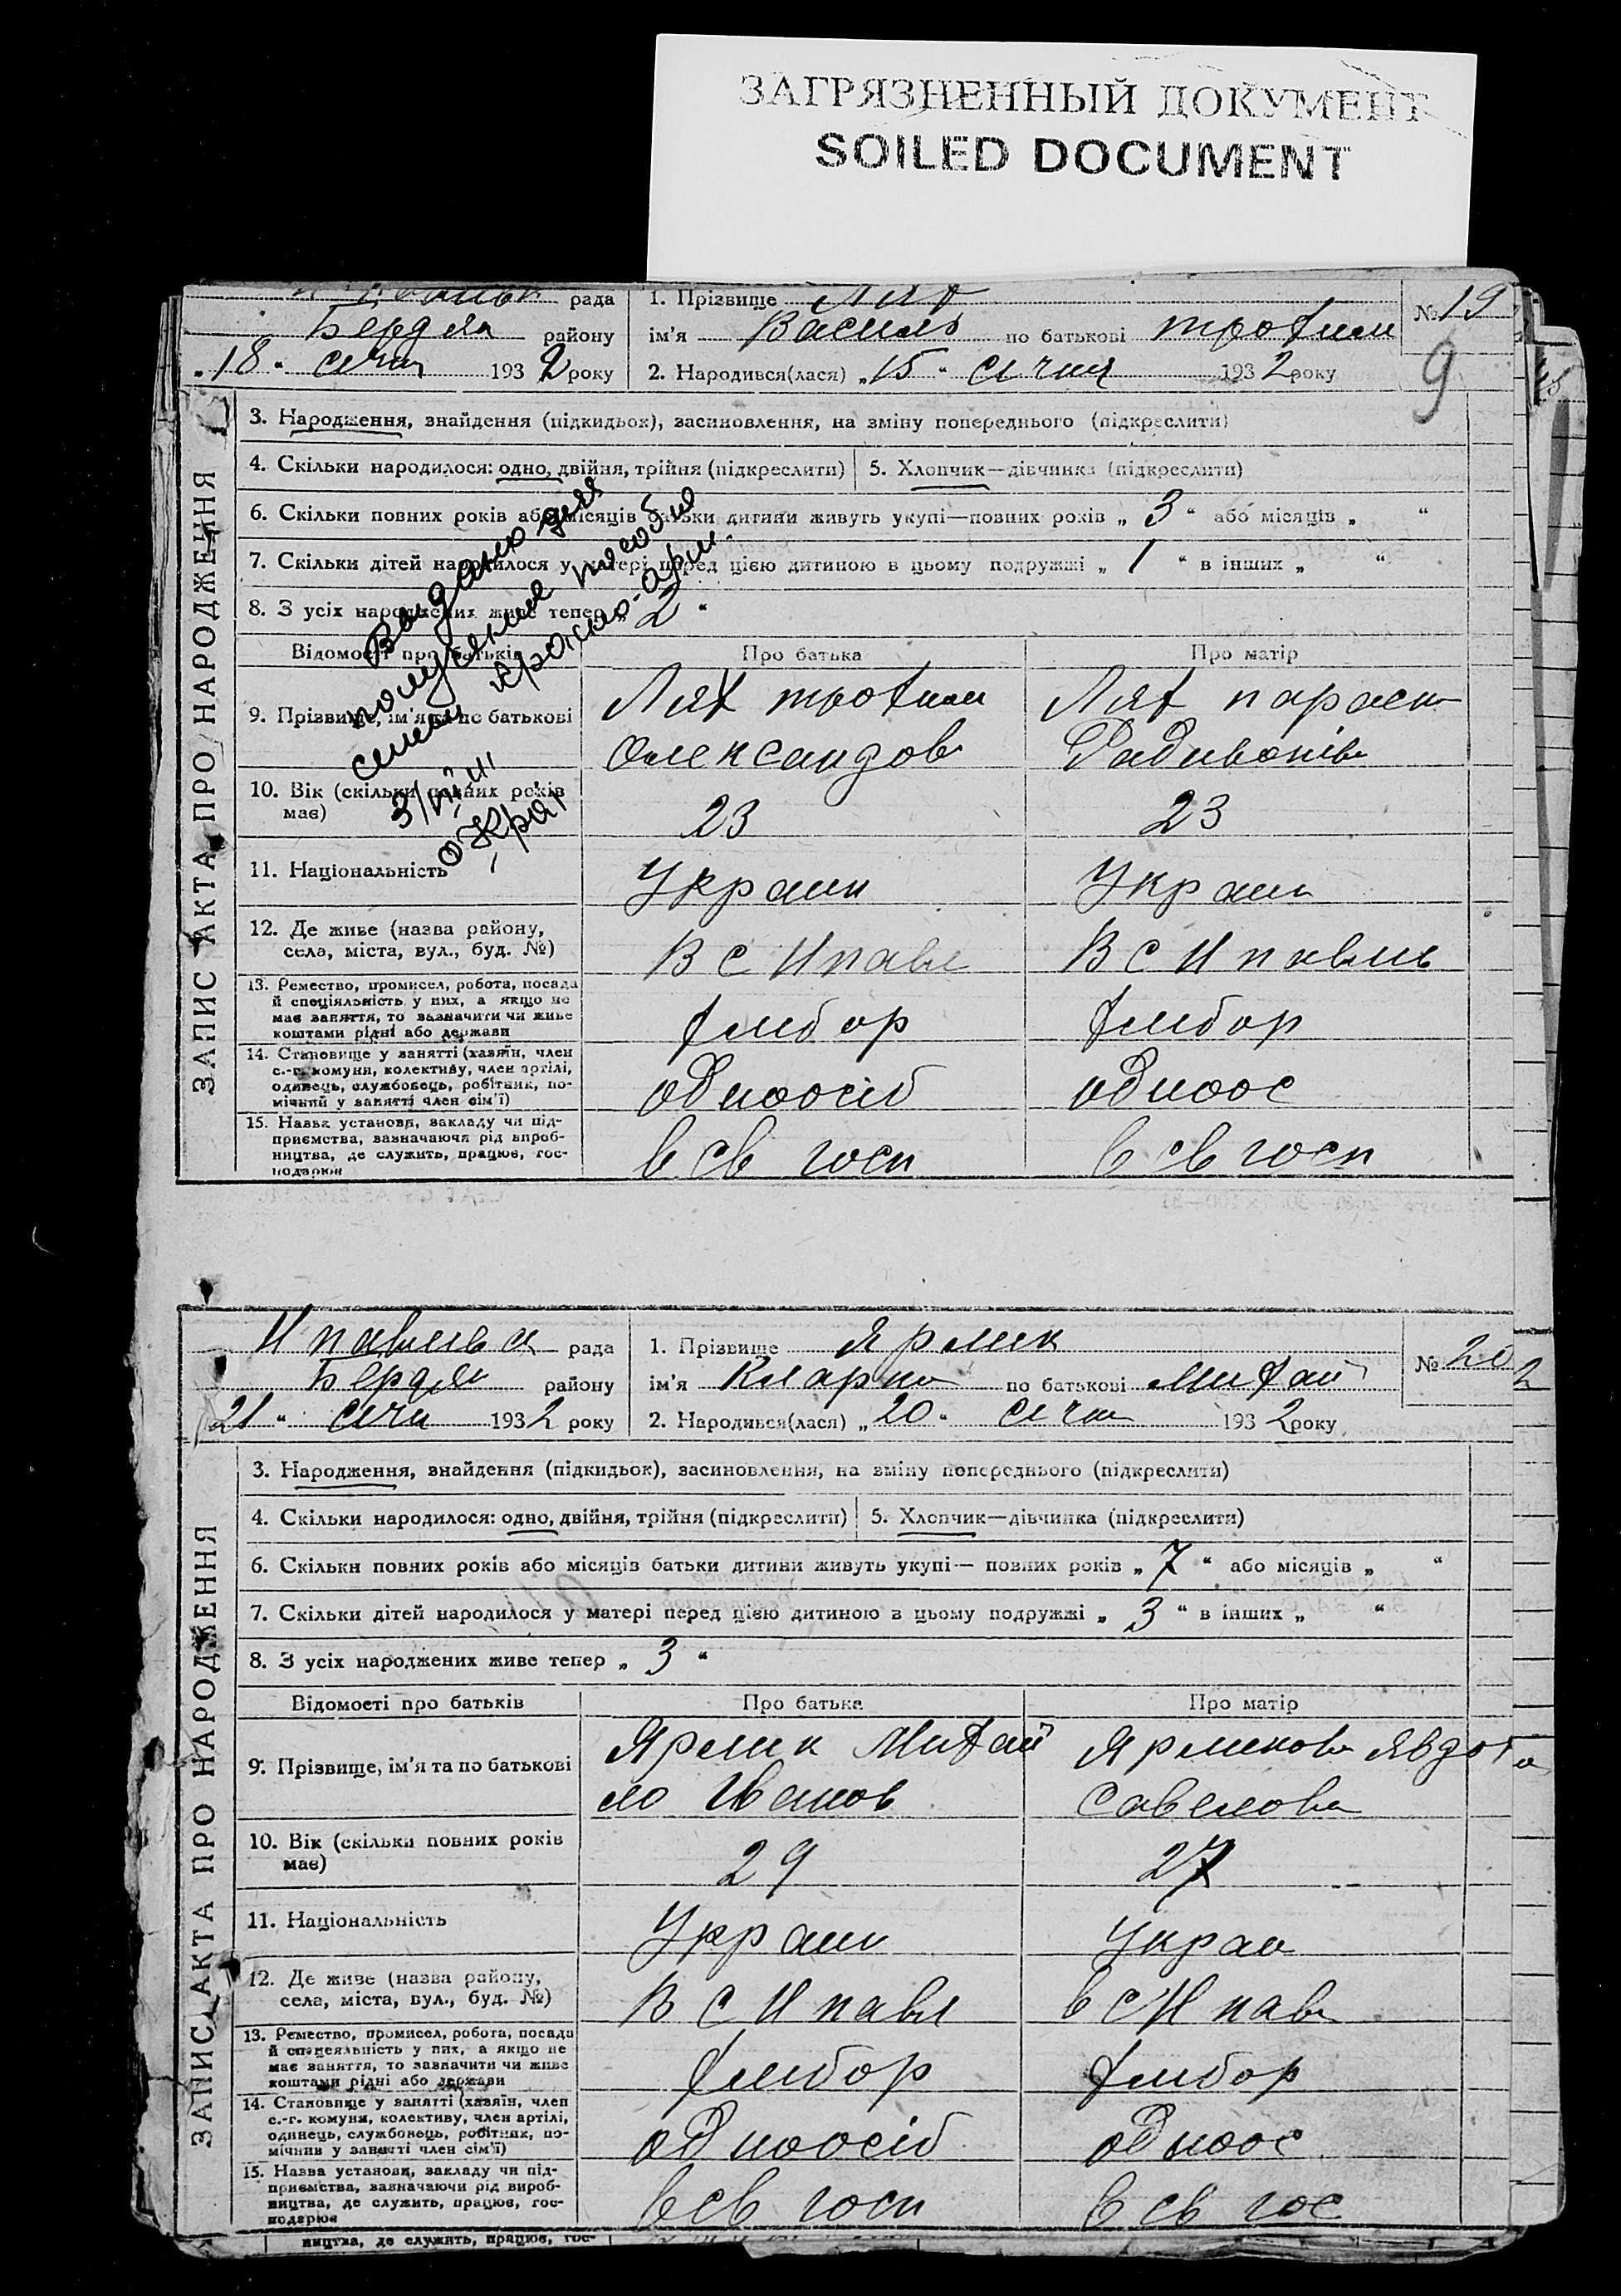 ЗАГРЯЗНЕННЫЙ ДОКУМЕНТ
SOILED DOCUMENT
рада
1. Прізвище Лях
№ 19
Бердян району
ім'я Василь по батькові трохим
„18“ січн 1932 року
2. Народився(лася) „15“ січня 1932 року
9
ЗАПИС АКТА ПРО НАРОДЖЕННЯ
3. Народження, знайдення (підкидьок), засиновлення, на зміну попереднього (підкреслити)
4. Скільки народилося: одно, двійня, трійня (підкреслити)
5. Хлопчик—дівчинка (підкреслити)
6. Скільки повних років або місяців батьки дитини живуть укупі—повних років „3“ або місяців „ “
7. Скільки дітей народилося у матері перед цією дитиною в цьому подружжі „1“ в інших „ “
8. З усіх народжених живе тепер „2“
Видано для
получения пособия
семьи красно-арм.
Відомості про батьків
Про батька
Про матір
9. Прізвище, ім'я та по батькові
Лях трохим
Олександов
Лях параск
10. Вік (скільки повних років
має)
23
23
11. Національність
Украин
Украин
12. Де живе (назва району,
села, міста, вул., буд. №)
В с Н павл
В с Н павлів
13. Ремество, промисел, робота, посада
й спеціяльність у них, а якщо не
має заняття, то зазначити чи живе
коштами рідні або держави
хлибор
хлибор
14. Становище у занятті (хазяїн, член
с.-г. комуни, колективу, член артілі,
одинець, службовець, робітник, по-
мічний у занятті член сім'ї)
одноосіб
одноос
15. Назва установи, закладу чи під-
приємства, зазначаючи рід вироб-
ництва, де служить, працює, гос-
подарює
в св госп
в св госп
Н павлівск рада
1. Прізвище Ярмик
№ 20
Бердян району
ім'я Кларко по батькові михай
21“ січн 1932 року
2. Народився(лася) „20“ січня 1932 року
ЗАПИС АКТА ПРО НАРОДЖЕННЯ
3. Народження, знайдення (підкидьок), засиновлення, на зміну попереднього (підкреслити)
4. Скільки народилося: одно, двійня, трійня (підкреслити)
5. Хлопчик—дівчинка (підкреслити)
6. Скільки повних років або місяців батьки дитини живуть укупі— повних років „7“ або місяців „ “
7. Скільки дітей народилося у матері перед цією дитиною в цьому подружжі „3“ в інших „ “
8. З усіх народжених живе тепер „3“
Відомості про батьків
Про батька
Про матір
9. Прізвище, ім'я та по батькові
Ярмик Михай
ло Иванов
Ярмикова Явдоха
Савелова
10. Вік (скільки повних років
має)
29
27
11. Національність
Украин
Украи
12. Де живе (назва району,
села, міста, вул., буд. №)
В с Н павл
в с Н павл
13. Ремество, промисел, робота, посада
й спецеяльність у них, а якщо не
має заняття, то зазначити чи живе
коштами рідні або держави
хлибор
хлибор
14. Становище у занятті (хазяїн, член
с.-г. комуни, колективу, член артілі,
одинець, службовець, робітник, по-
мічний у занятті член сім'ї)
одноосіб
одноос
15. Назва установи, закладу чи під-
приємства, зазначаючи рід вироб-
ництва, де служить, працює, гос-
подарює
в св госп
в св гос
ництва, де служить, працює, гос-